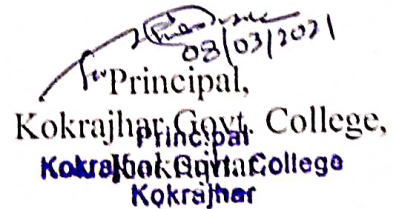 08/03/2021
Principal,
Kokrajhar Govt. College,
Kokrajhar
Principal
Kokrajhar Govt. College
Kokrajhar